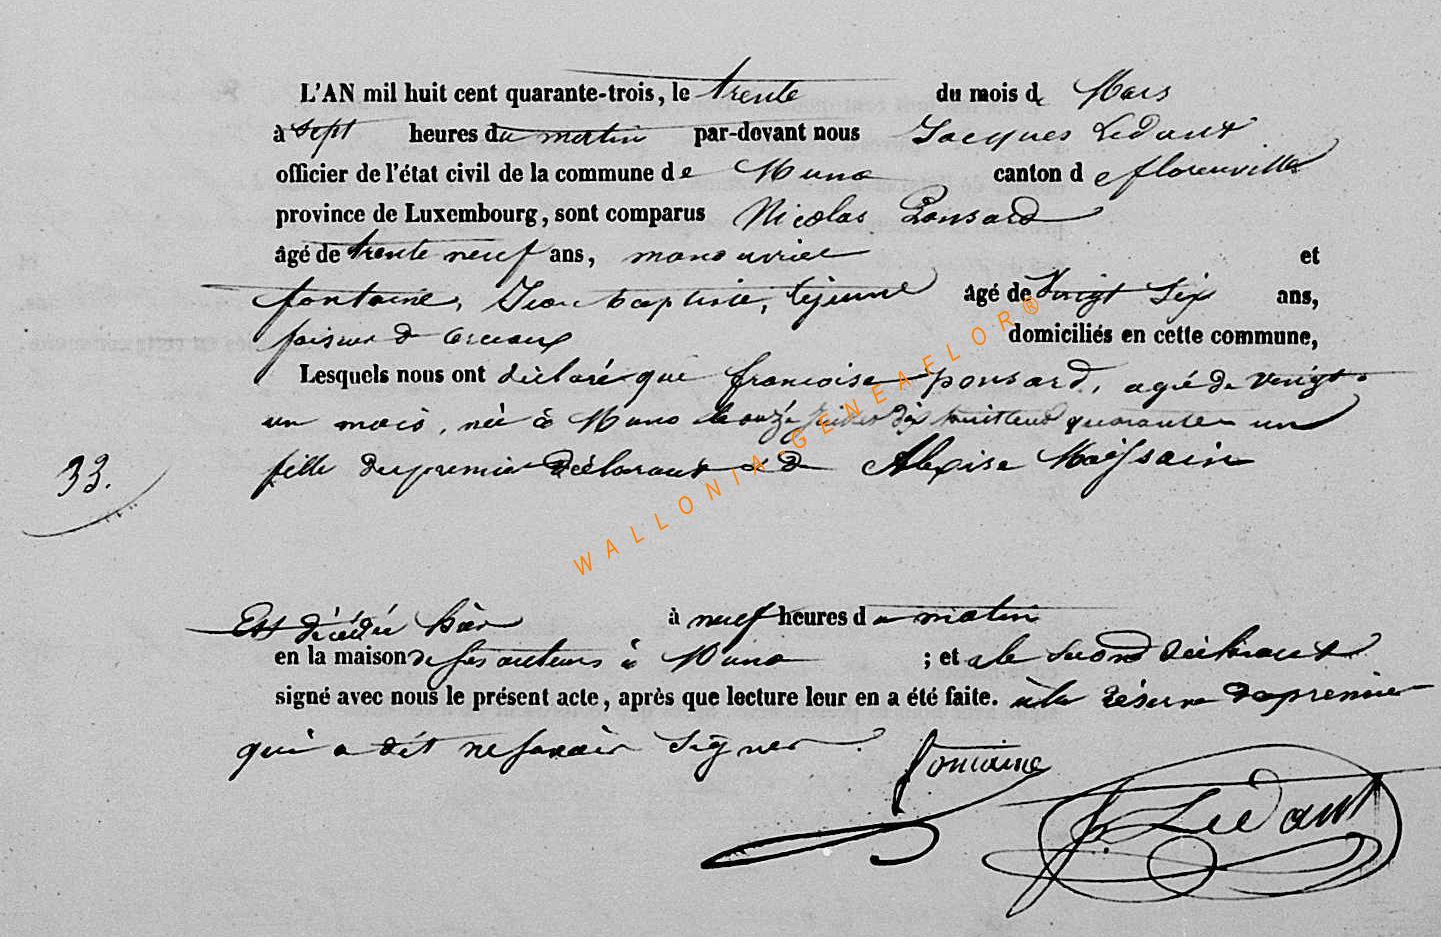 L'AN mil huit cent quarante-trois, le trente du mois de Mars
à sept heures du matin par-devant nous Jacques Lédant
officier de l'état civil de la commune de Muno canton de florenville
province de Luxembourg, sont comparus Nicolas Ponsard
âgé de trente neuf ans, manouvrier et
fontaine, Jean baptiste, lejeune âgé de Vingt Six ans,
faiseur de domiciliés en cette commune,
Lesquels nous ont déclaré que françoise ponsard, agée de vingt
un mois, née à Muno le onze dix huit cent quarante un
33. fille du premier déclarant & de Alexise Maissain
Est décédée hier à neuf heures du matin
en la maison de ses auteurs à Muno ; et a le second déclarant
signé avec nous le présent acte, après que lecture leur en a été faite. à la réserve du premier
qui a dit ne savoir signer.
fontaine
J. Lédant
WALLONIA-GENEAFLOR®